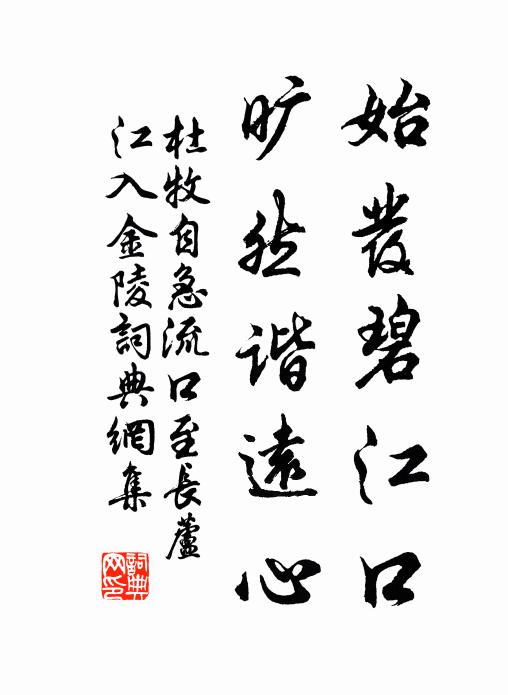 始發碧江口
旷然谐遠心
杜牧自急流口至長蘆
江入金陵詞典網集
詞典
网印